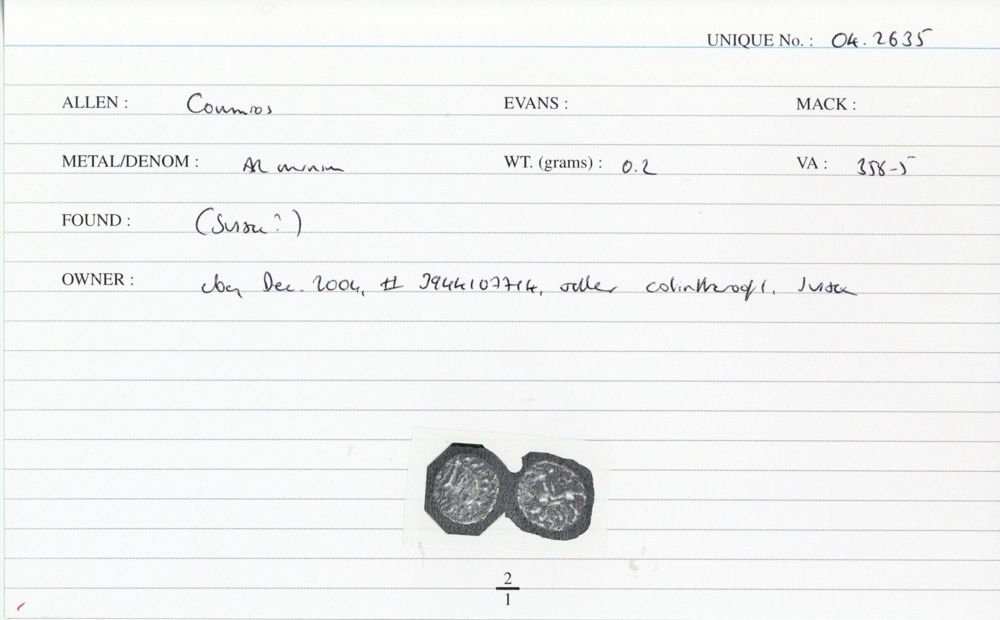 UNIQUE No. : 04.2635
ALLEN : Commios EVANS : MACK :
METAL/DENOM : AR minim WT. (grams) : 0.2 VA : 358-5
FOUND : (Sussex?)
OWNER : ebay Dec. 2004, # 3944107714, seller Sussex
2
1